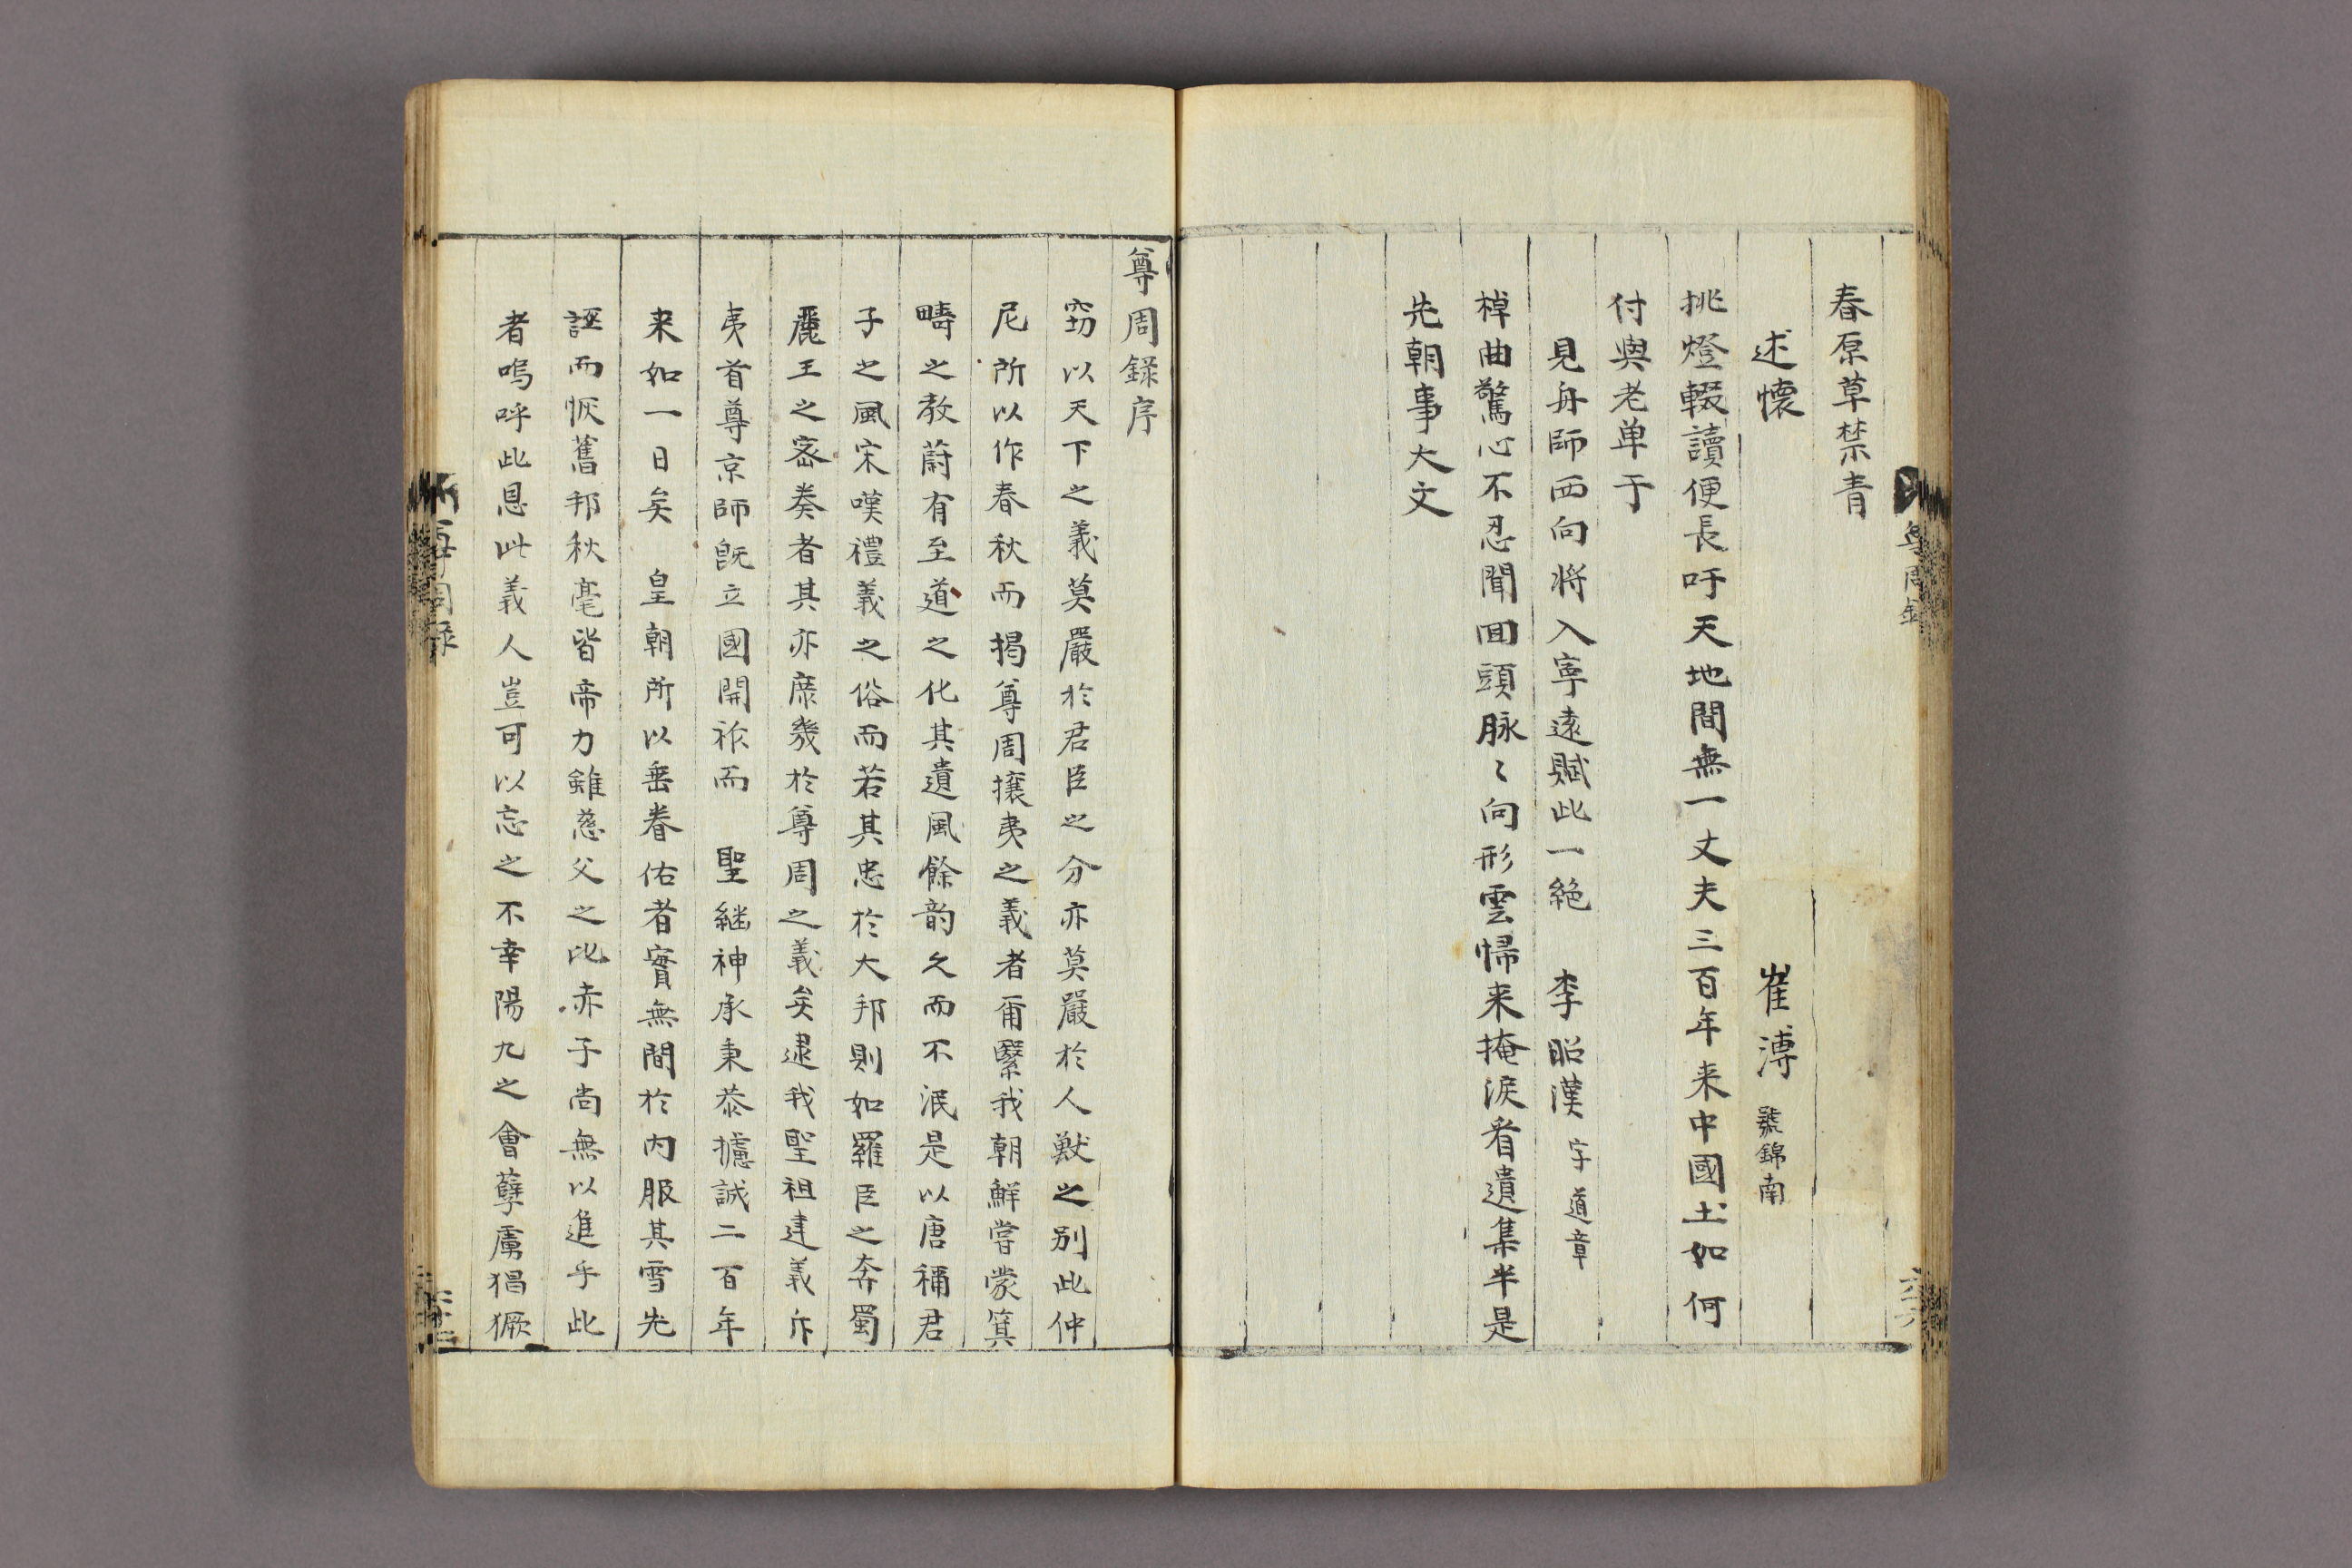 春原草禁青
述懷 崔溥 號錦南
挑燈輟讀便長吁天地間無一丈夫三百年来中國土如何
付與老单于
見舟師西向将入寧遠賦此一絶 李昭漢 字道章
棹曲驚心不忍聞回頭脉〻向形雲帰来掩淚看遺集半是
先朝事大文
尊周錄
六十六
尊周錄序
窃以天下之義莫嚴於君臣之分亦莫嚴於人獣之别此仲
尼所以作春秋而揭尊周攘夷之義者爾繄我朝鮮嘗蒙箕
疇之教蔚有至道之化其遺風餘韵久而不泯是以唐稱君
子之風宋嘆禮義之俗而若其忠於大邦則如羅臣之奔蜀
麗王之宻奏者其亦庶幾於尊周之義矣逮我聖祖建義斥
夷首尊京師旣立國開祚而 聖継神承秉恭攄誠二百年
来如一日矣 皇朝所以垂眷佑者實無間於内服其雪先
誣而恢舊邦秋毫皆帝力雖慈父之比赤子尚無以進乎此
者嗚呼此恩此義人豈可以忘之不幸陽九之會孽虜猖獗
尊周錄